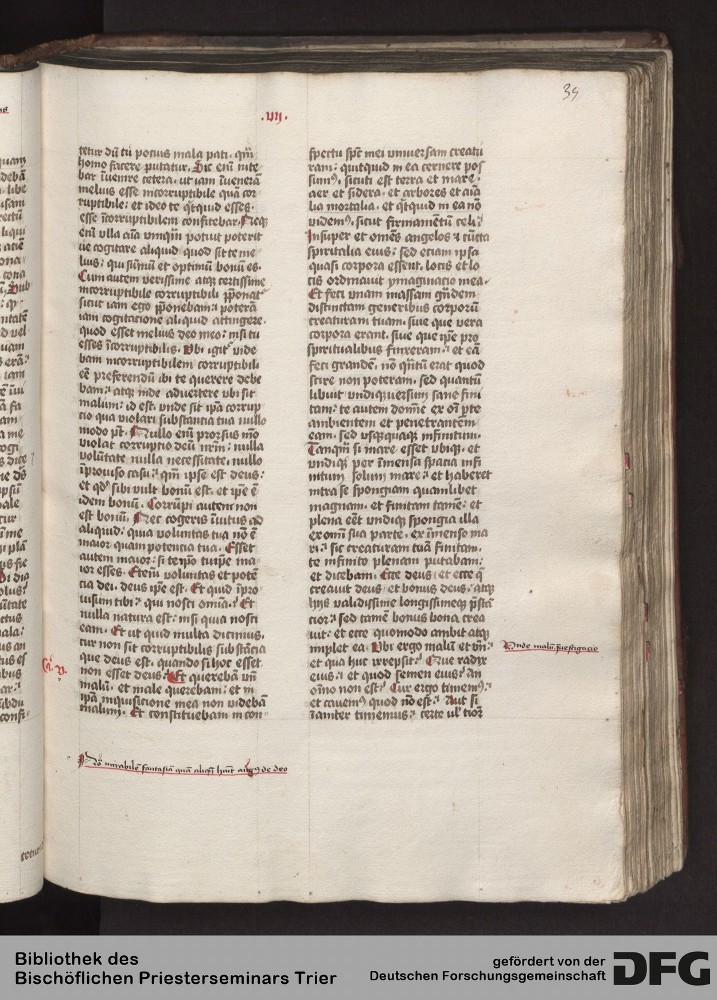 39
.vij.
tetur dū tu pocius mala pati. qm̄
homo facere putatur. Sic enī nite
bar īuenire cetera. ut iam īueneraꝫ
melius esse incorruptibile quā cor
ruptibile. et ideo te qͥtquid esses.
esse īcorruptibilem confitebar. Neqꝫ
enī vlla aīa vnꝙ̄m potuit poterit
ue cogitare aliquid quod sit te me
lius. qui sūmū et optimū bonū es.
Cum autem verissime atqꝫ certissime
incorruptibile corruptibili p̄ponat᷒
sicut iam ego p̄ponebam. poterā
iam cogitatione aliquid attingere.
quod esset melius deo meo. nisi tu
esses īcorruptibilis. Vbi igiť vide
bam incorruptibilem corruptibili
eē preferendū ibi te querere debe
bam. atqꝫ inde aduertere vbi sit
malum. id est vnde sit ip̄a corrup
tio qua violari substantia tua nullo
modo pt̄. Nullo enī prorsus mō
violat corruptio deū nr̄m. nulla
volūtate nulla necessitate. nullo
īprouiso casu. qm̄ ipse est deus.
et qd̛ sibi vult bonū est. et ip̄e ē
idem bonū. Corrūpi autem non
est bonū. Nec cogeris īuitus ad
aliquid. quia voluntas tua nō ē
maior quam potencia tua. Esset
autem maior. si teip̄o tuip̄e ma
ior esses. Etenī voluntas et potē
tia dei. deus ip̄e est. Et quid īpro
uisum tibi. qui nosti omīa. Et
nulla natura est. nisi quia nosti
eam. Et ut quid multa dicimus,
cur non sit corruptibilis substācia
que deus est. quando si hoc esset
non esset deus. Et querebā vn̄
malū. et male querebam. et in
ip̄a inquisicione mea non videbā
malum. Et constituebam in con
Nō mirabilē fantasiā quā aliqn̄ huīt augꝰ de deo
Ca. v.
spectu spc̄ mei vniuersam creatu
ram. quitquid in ea cernere pos
sumꝰ. sicuti est terra et mare.
aer et sidera. et arbores et aīa
lia mortalia. et qͥtquid in ea nō
videmꝰ. sicut firmamētū celi.
Insuper et omēs angelos et cūcta
spiritalia eius. sed etiam ip̄sa
quasi corpora essent. locis et lo
cis ordinauit ymaginacio mea.
Et feci vnam massam gn̄dem
distinctam generibus corporū
creaturam tuam. siue que vera
corpora erant. siue que ip̄e pro
spiritualibus finxeram. et eā
feci grandē. nō qn̄tū erat quod
scire non poteram. sed quantū
libuit vndiqꝫuersum sane fini
tam. te autem domīe ex oī pte
ambientem et penetrantem
eam. sed vsqꝫquaqꝫ infinitum.
Tanqm̄ si mare esset vbiqꝫ. et
vndiqꝫ per īmensa spacia infi
nitum solum mare. et haberet
intra se spongiam quamlibet
magnam. et finitam tamē. et
plena eēt vndiqꝫ spongia illa
ex omī sua parte. ex īmenso ma
ri. sic creaturam tuā finitam.
te infinito plenam putabam.
et dicebam. Ecce deus et ecce q̄
creauit deus et bonus deus. atqꝫ
hijs validissime longissimeqꝫ p̄stā
cior. sed tamē bonus bona crea
uit. et ecce quomodo ambit atqꝫ
implet ea. Vbi ergo malū et vn̄.
et qua huc irrepsit. Que radix
eius. et quod semen eius. an
oīno non est. Cur ergo timemꝰ.
et cauemꝰ quod nō est. Aut si
īaniter timemus. certe ul̛ tior
Vnde malū īuestigacio
Bibliothek des
Bischöflichen Priesterseminars Trier
gefördert von der
Deutschen Forschungsgemeinschaft
DFG